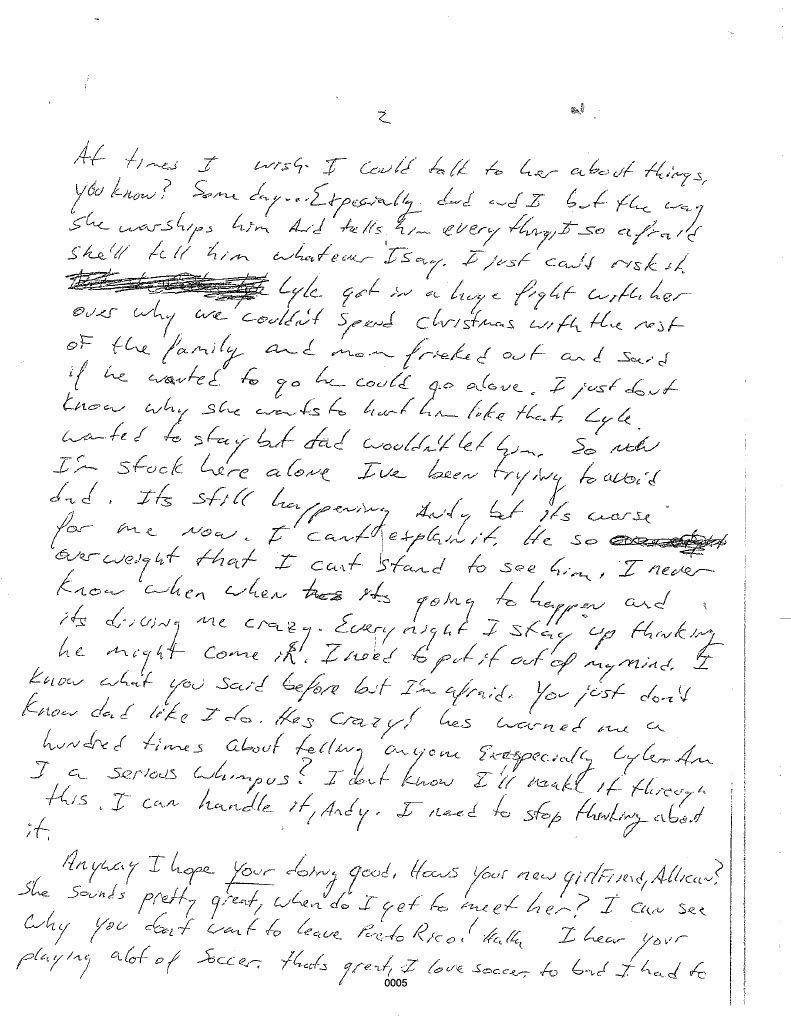 2
At times I wish I could talk to her about things,
you know? Some day... Expecially dad and I but the way
she warships him And tells him every thing, I so afraid
she'll tell him whatever I say. I just can't risk it.
Lyle got in a huge fight with her
over why we couldn't spend Christmas with the rest
of the family and mom frieked out and said
if he wanted to go he could go alone. I just dont
know why she wants to hurt him like that. Lyle
wanted to stay but dad wouldn't let him. So now
I'm stuck here alone I've been trying to avoid
dad. Its still happening Andy but its worse
for me now. I can't explain it. He so
overweight that I can't stand to see him. I never
know when when its going to happen and
its driving me crazy. Every night I stay up thinking
he might come in. I need to put it out of my mind. I
know what you said before but I'm afraid. You just don't
know dad like I do. Hes crazy! hes warned me a
hundred times about telling anyone Exespecially Lyle. Am
I a serious whimpus? I dont know I'll make it through
this. I can handle it, Andy. I need to stop thinking about
it.
Anyway I hope your doing good. Hows your new girlfriend, Allison?
She sounds pretty great, when do I get to meet her? I can see
why you don't want to leave Puerto Rico! I hear your
playing alot of soccer. thats great, I love soccer. to bad I had to
0005